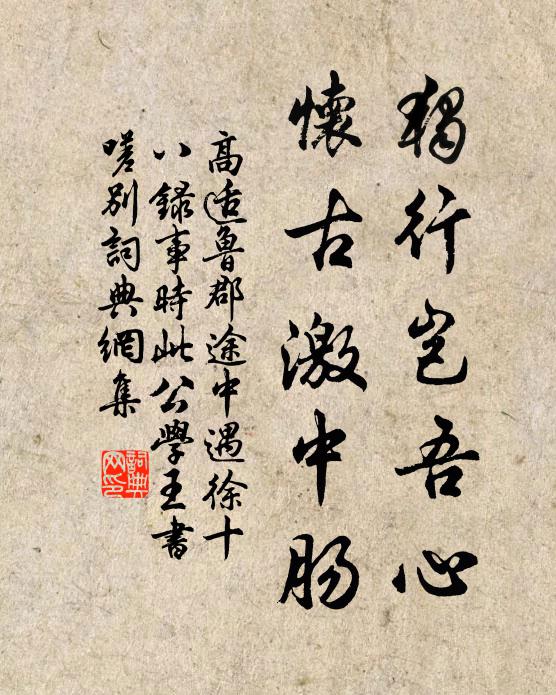 獨行豈吾心
懷古激中腸
高適魯郡途中遇徐十
八錄事時此公學王書
嗟別詞典網集
詞典网印